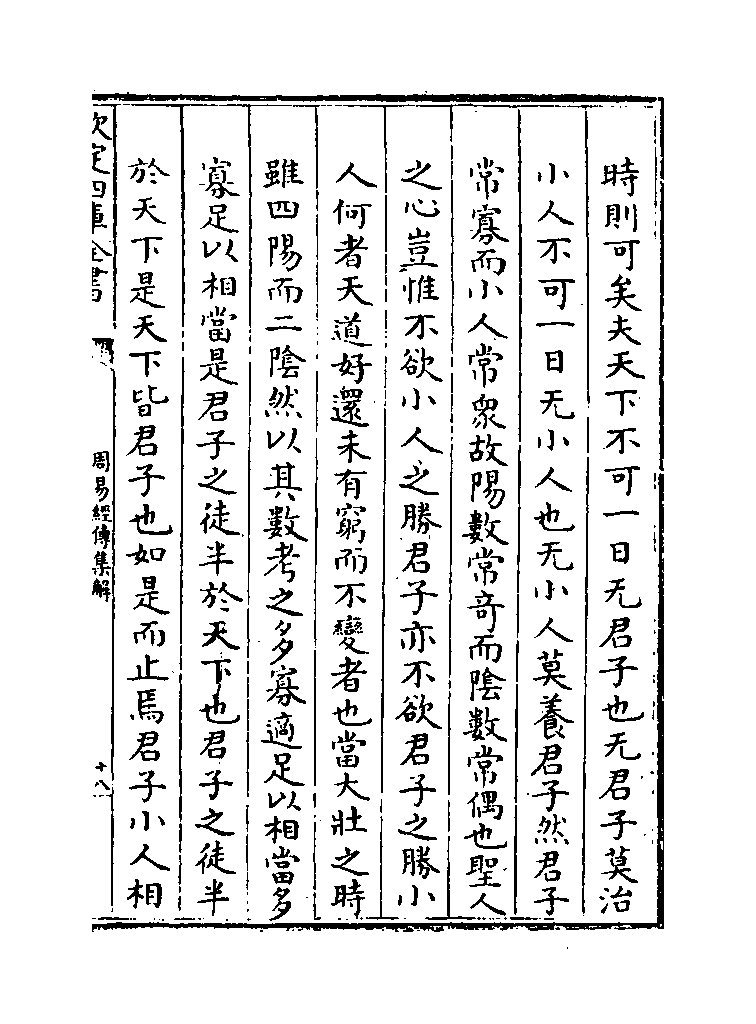 時則可矣夫天下不可一日无君子也无君子莫治
小人不可一日无小人也无小人莫養君子然君子
常寡而小人常衆故陽數常竒而陰數常偶也聖人
之心豈惟不欲小人之勝君子亦不欲君子之勝小
人何者天道好還未有窮而不變者也當大壯之時
雖四陽而二陰然以其數考之多寡適足以相當多
寡足以相當是君子之徒半於天下也君子之徒半
於天下是天下皆君子也如是而止焉君子小人相
欽定四庫全書
周易經傳集解
十八